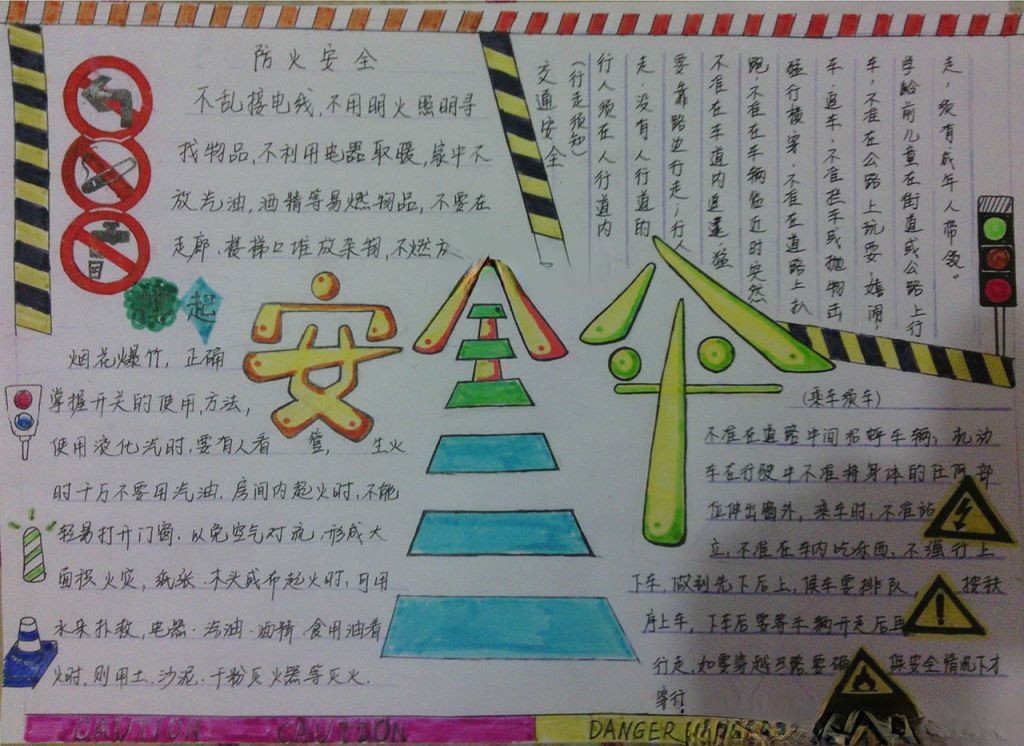 防火安全
不乱接电线,不用明火照明寻
找物品,不利用电器取暖,家中不
放汽油,酒精等易燃物品,不要在
走廊、楼梯口堆放杂物,不燃方
烟花爆竹,正确
掌握开关的使用方法,
使用液化汽时,要有人看管,生火
时千万不要用汽油.房间内起火时,不能
轻易打开门窗.以免空气对流.形成大
面积火灾,纸张.木头或布起火时,可用
水来扑救,电器.汽油.酒精.食用油着
火时,则用土.沙泥.干粉灭火器等灭火.
安全伞
交通安全
(行走须知)
行人须在人行道内
走,没有人行道的
要靠路边行走;行人
不准在车道内追逐、猛
跑,不准在车辆临近时突然
猛行横穿,不准在道路上扒
车、追车,不准拦车或抛物击
车,不准在公路上玩耍、嬉闹,
学龄前儿童在街道或公路上行
走,须有成年人带领。
(乘车须车)
不准在道路中间招呼车辆;机动
车在行驶中不准将身体的任何部
位伸出窗外,乘车时,不准站
立,不准在车内吃东西,不强行上
下车,做到先下后上,候车要排队,按秩
序上车,下车后要等车辆开走后再
行走,如要穿越马路要确保安全情况下才
穿行.
CAUTION CAUTION DANGER